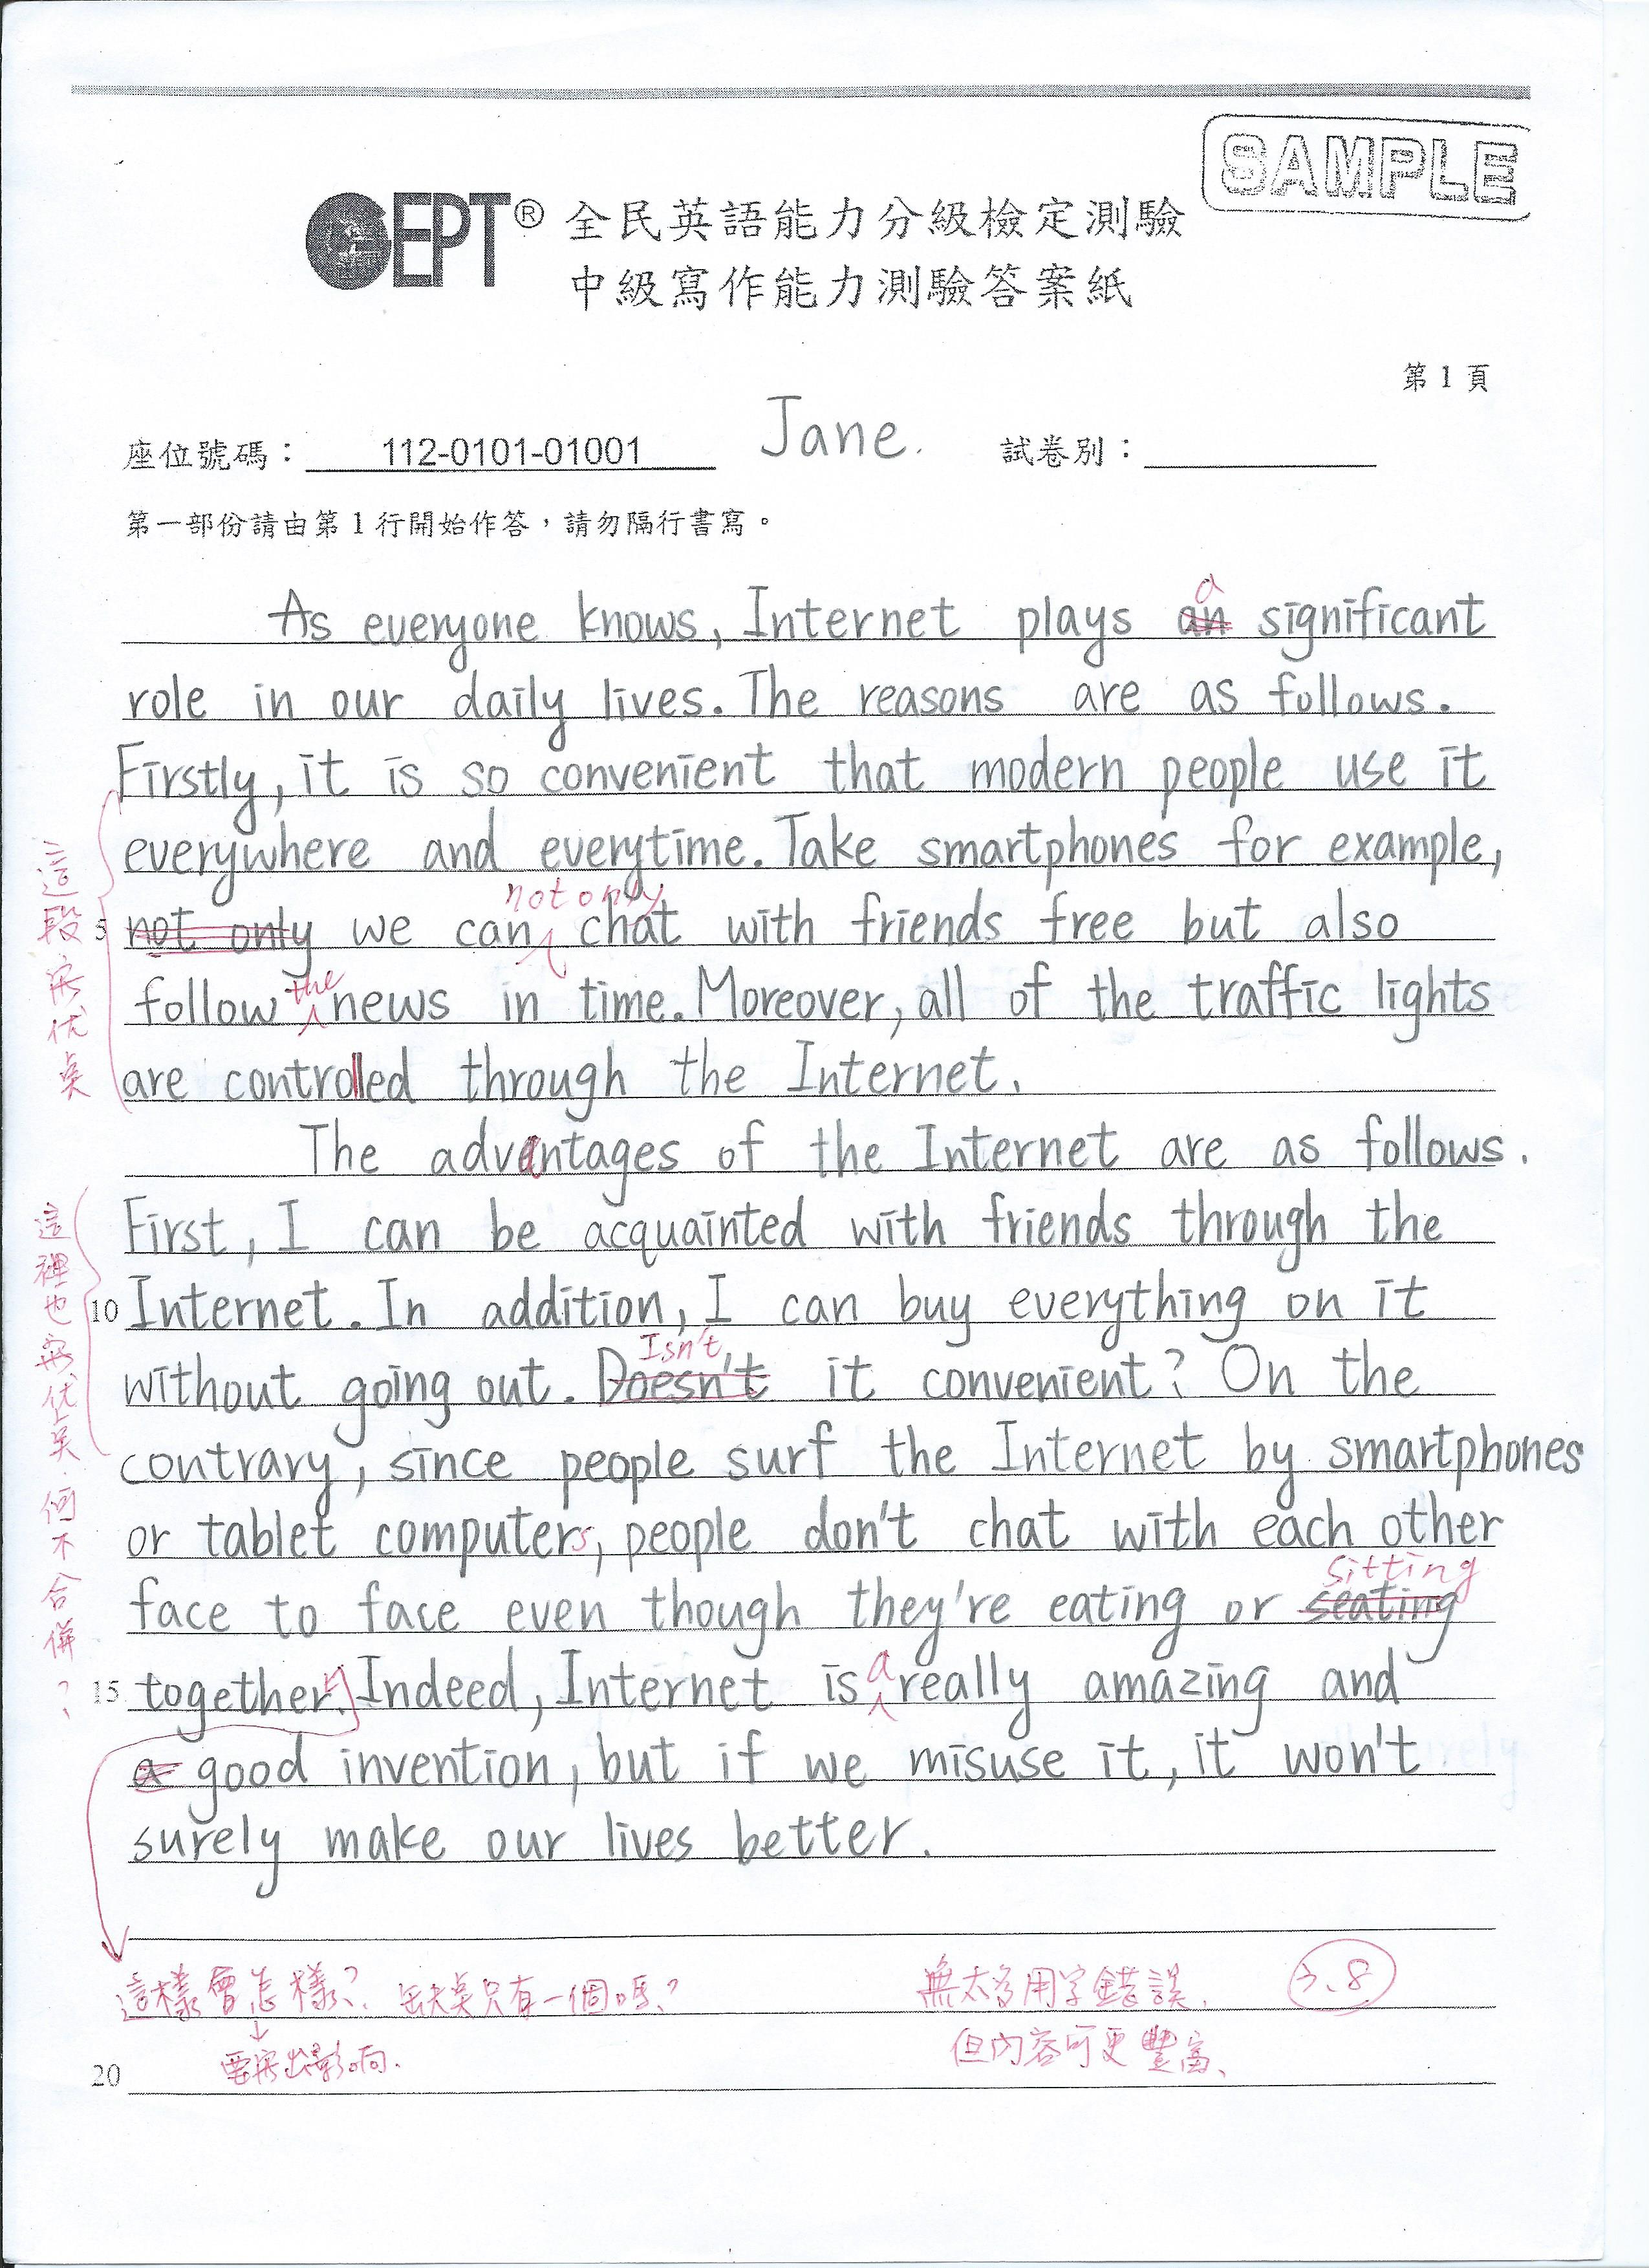 SAMPLE
GEPT® 全民英語能力分級檢定測驗
中級寫作能力測驗答案紙
第 1 頁
座位號碼： 112-0101-01001 Jane. 試卷別：
第一部份請由第 1 行開始作答，請勿隔行書寫。
a
As everyone knows, Internet plays an significant
role in our daily lives. The reasons are as follows.
Firstly, it is so convenient that modern people use it
everywhere and everytime. Take smartphones for example,
not only
5 not only we can chat with friends free but also
follow the news in time. Moreover, all of the traffic lights
are controlled through the Internet.
這段寫優點
The advantages of the Internet are as follows.
First, I can be acquainted with friends through the
10 Internet. In addition, I can buy everything on it
Isn't
without going out. Doesn't it convenient? On the
contrary, since people surf the Internet by smartphones
or tablet computers, people don't chat with each other
sitting
face to face even though they're eating or seating
15 together. Indeed, Internet is a really amazing and
a good invention, but if we misuse it, it won't
surely make our lives better.
這裡也寫優點.何不合併?
這樣會怎樣? 缺點只有一個嗎?
要寫出影响.
無太多用字錯誤.
但內容可更豐富.
3.8
20